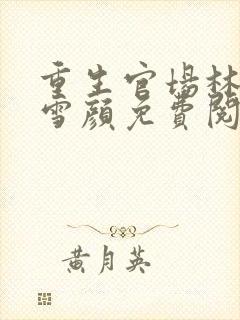 重生官場林
雪顏免費閱
黃月英